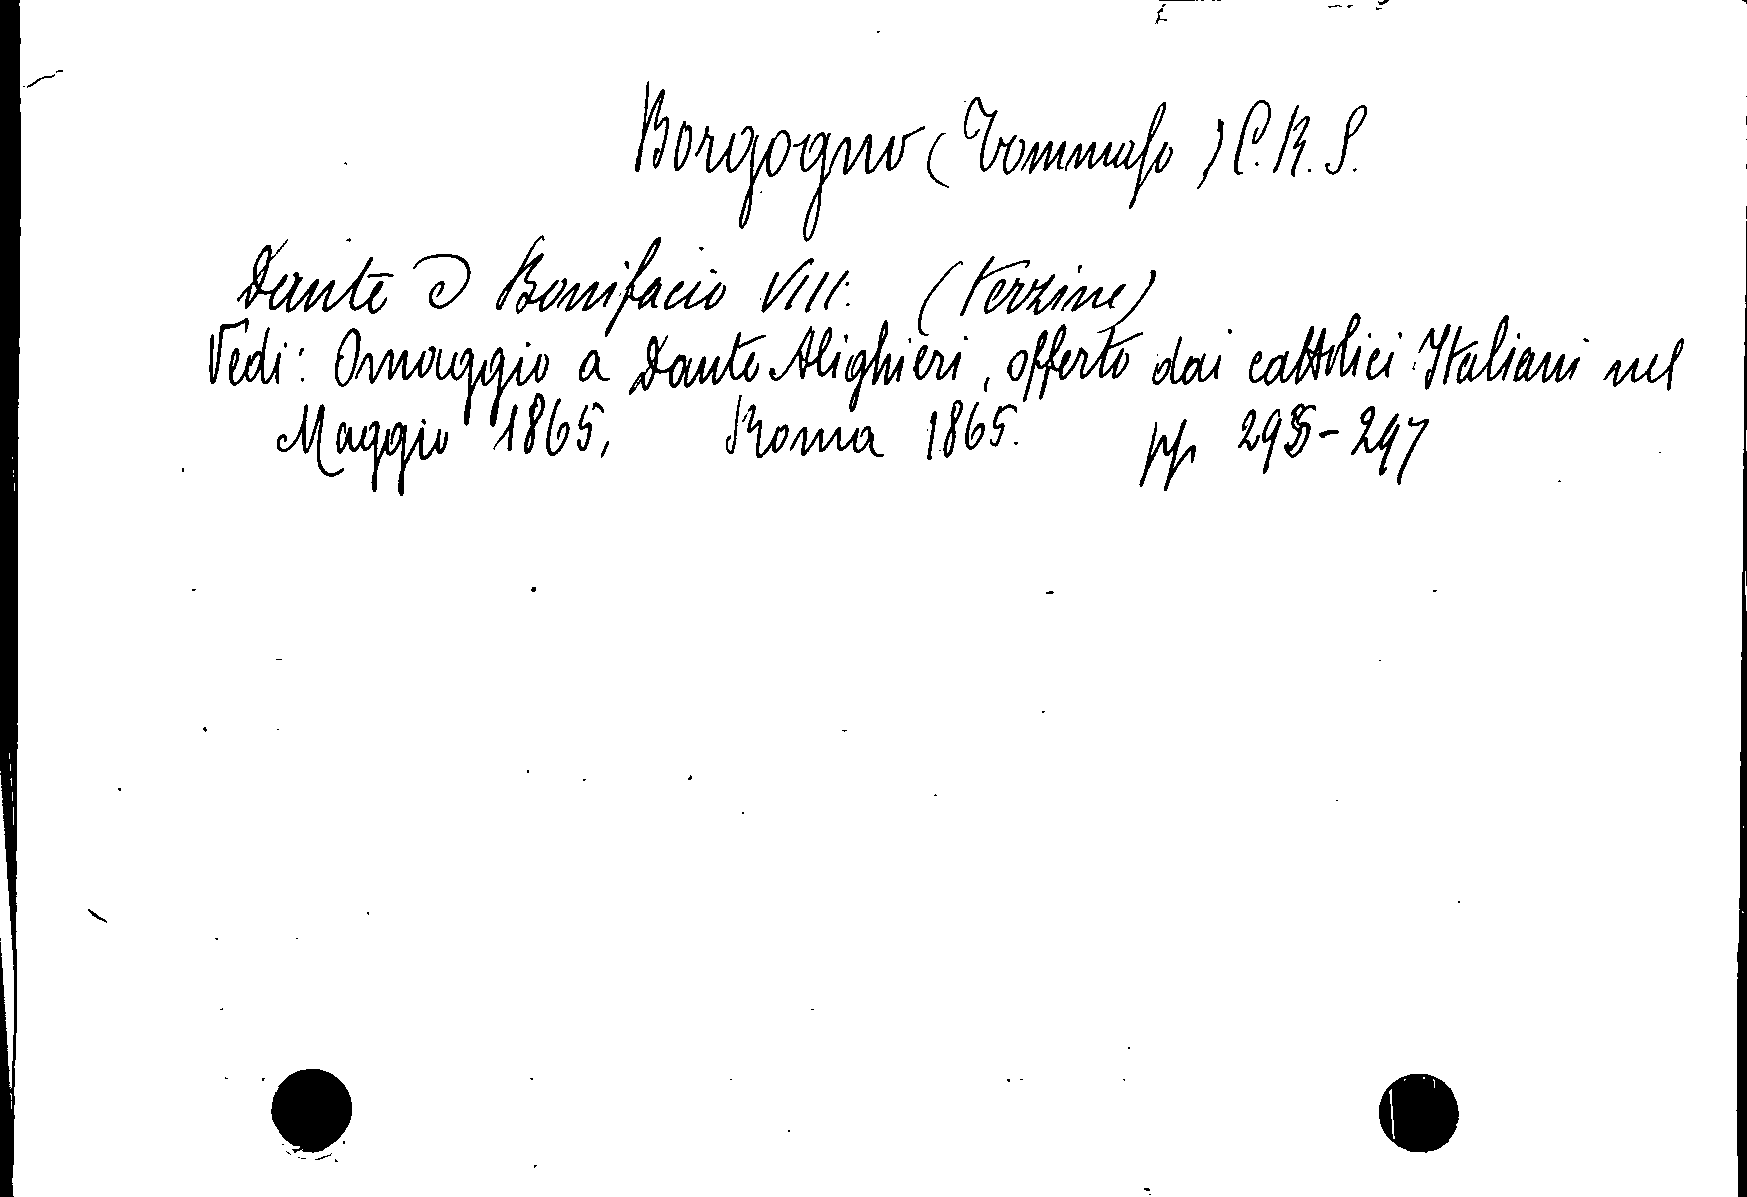 Borgogno (Tommaso) C.R.S.
Dante e Bonifacio VIII. (terzine)
Vedi: Omaggio a Dante Alighieri, offerto dai cattolici Italiani nel
Maggio 1865, Roma 1865. pp 295-297